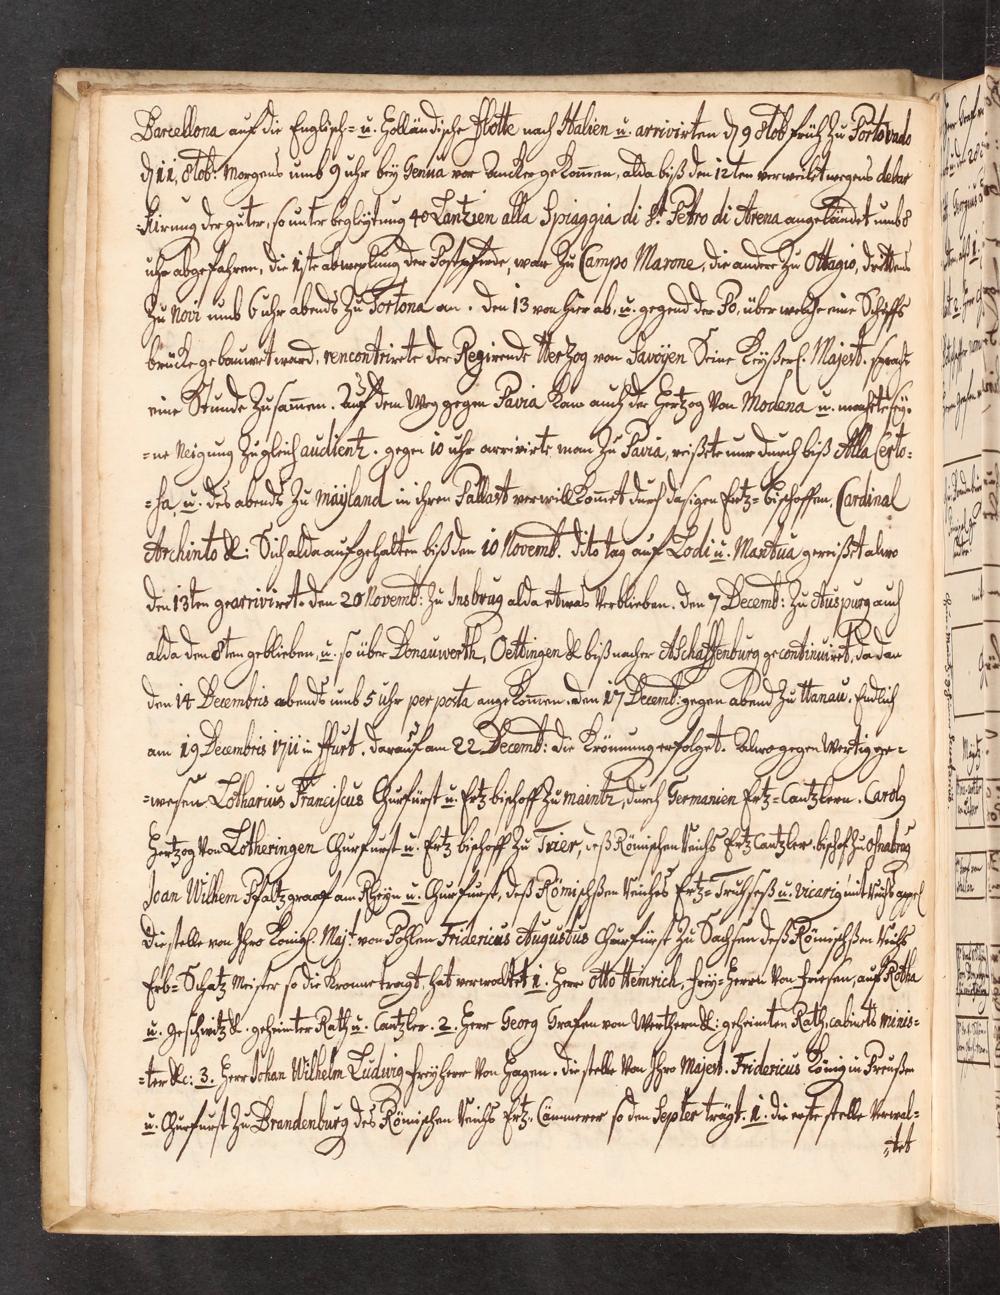 Barcellona auf die Englisch= u. Holländische flotte nach Italien u. arrivirten dh 9 8tob früh zu Porto vado
dh 11, 8tob: Morgens umb 9 uhr bey Genua vor Ancker gekom̄en, alda biß den 12ten verweilet wegens debar
:kirung der güter, so unter begleytung 40 Lantzien alla Spiaggia di St. Petro di Arena angeländet umb 8
uhr abgefahren, die 1ste abwexlung der Postpferde, war zu Campo Marone, die andere zu Ottagio, drittens
zu Novi umb 6 uhr abends zu Tortona an. den 13 von hier ab, u. gegend der Po, über welche eine Schiffs
brucke gebauwet ward, rencontrirete der Regirende Hertzog von Savoÿen Seine Keyßerl. Majest. sprach
eine Stunde zusam̄en. Auf dem Weg gegen Pavia kam auch der Hertzog von Modena u. machte sey=
=ne Neigung zugleich audientz. gegen 10 uhr arrivirte man zu Pavia, reißete nur durch biß Alla Certo=
=sa, u. des abends zu Mäyland in ihren Pallast verwillkomet durch dasigen Ertz=bischoffen, Cardinal
Archinto &: Sich alda aufgehalten biß den 10 Novemb. dito tag auf Lodi u. Mantua gereißet alwo
den 13ten gearriviret. den 20 Novemb: zu Insbrug alda etwas verblieben. den 7 Decemb: zu Auspurg auch
alda den 8ten geblieben, u. so über Donauwerth, Oettingen & biß nacher Aschaffenburg gecontinuiret, da dan
den 14 Decembris abends umb 5 uhr per posta angekom̄en. den 17 Decemb: gegen abend zu Hanau. Endlich
am 19 Decembris 1711 in ffurt. darauf am 22 Decemb: die Krönung erfolget. Alwo gegen Wertig ge=
=wesen Lotharius Franciscus Churfürst u. Ertzbischoff zu maintz, durch Germanien Ertz=Cantzlern. Carolg
Hertzog von Lotheringen Churfürst u. Ertzbischoff zu Trier, deß Römischen Reichs Ertz Cantzler. bischof zu Osnabrug
Joan Wilhem Pfaltzgraaf am Rheyn u. Churfürst, deß Römischßen Reiches Ertz=Truchseß u. vicarig mit Reichs appel
die stelle von Ihro Königl. Majt. von Pohlen Fridericus Augustus Churfürst zu Sachsen deß Römischßen Reichs
Erb=Schatz Meister so die Kronne tragt, hat verwaltet 1. Herr Otto Heinrich, frey=Herrn von friesen, auf Rötha
u. geheimter Rath u. Cantzler. 2. Herr Georg Grafen von Werthern &: geheimten Rath, cabinets minis=
=ter &c: 3. Herr Johan Wilhelm Ludwig freyherr von Hagen. die stelle von Ihro Majest. Fridericus König in Preußen
u. Churfürst zu Brandenburg des Römischen Reichs Ertz. Cämmerer so den Septer trägt. 1. die erste stelle verwal=
=tet